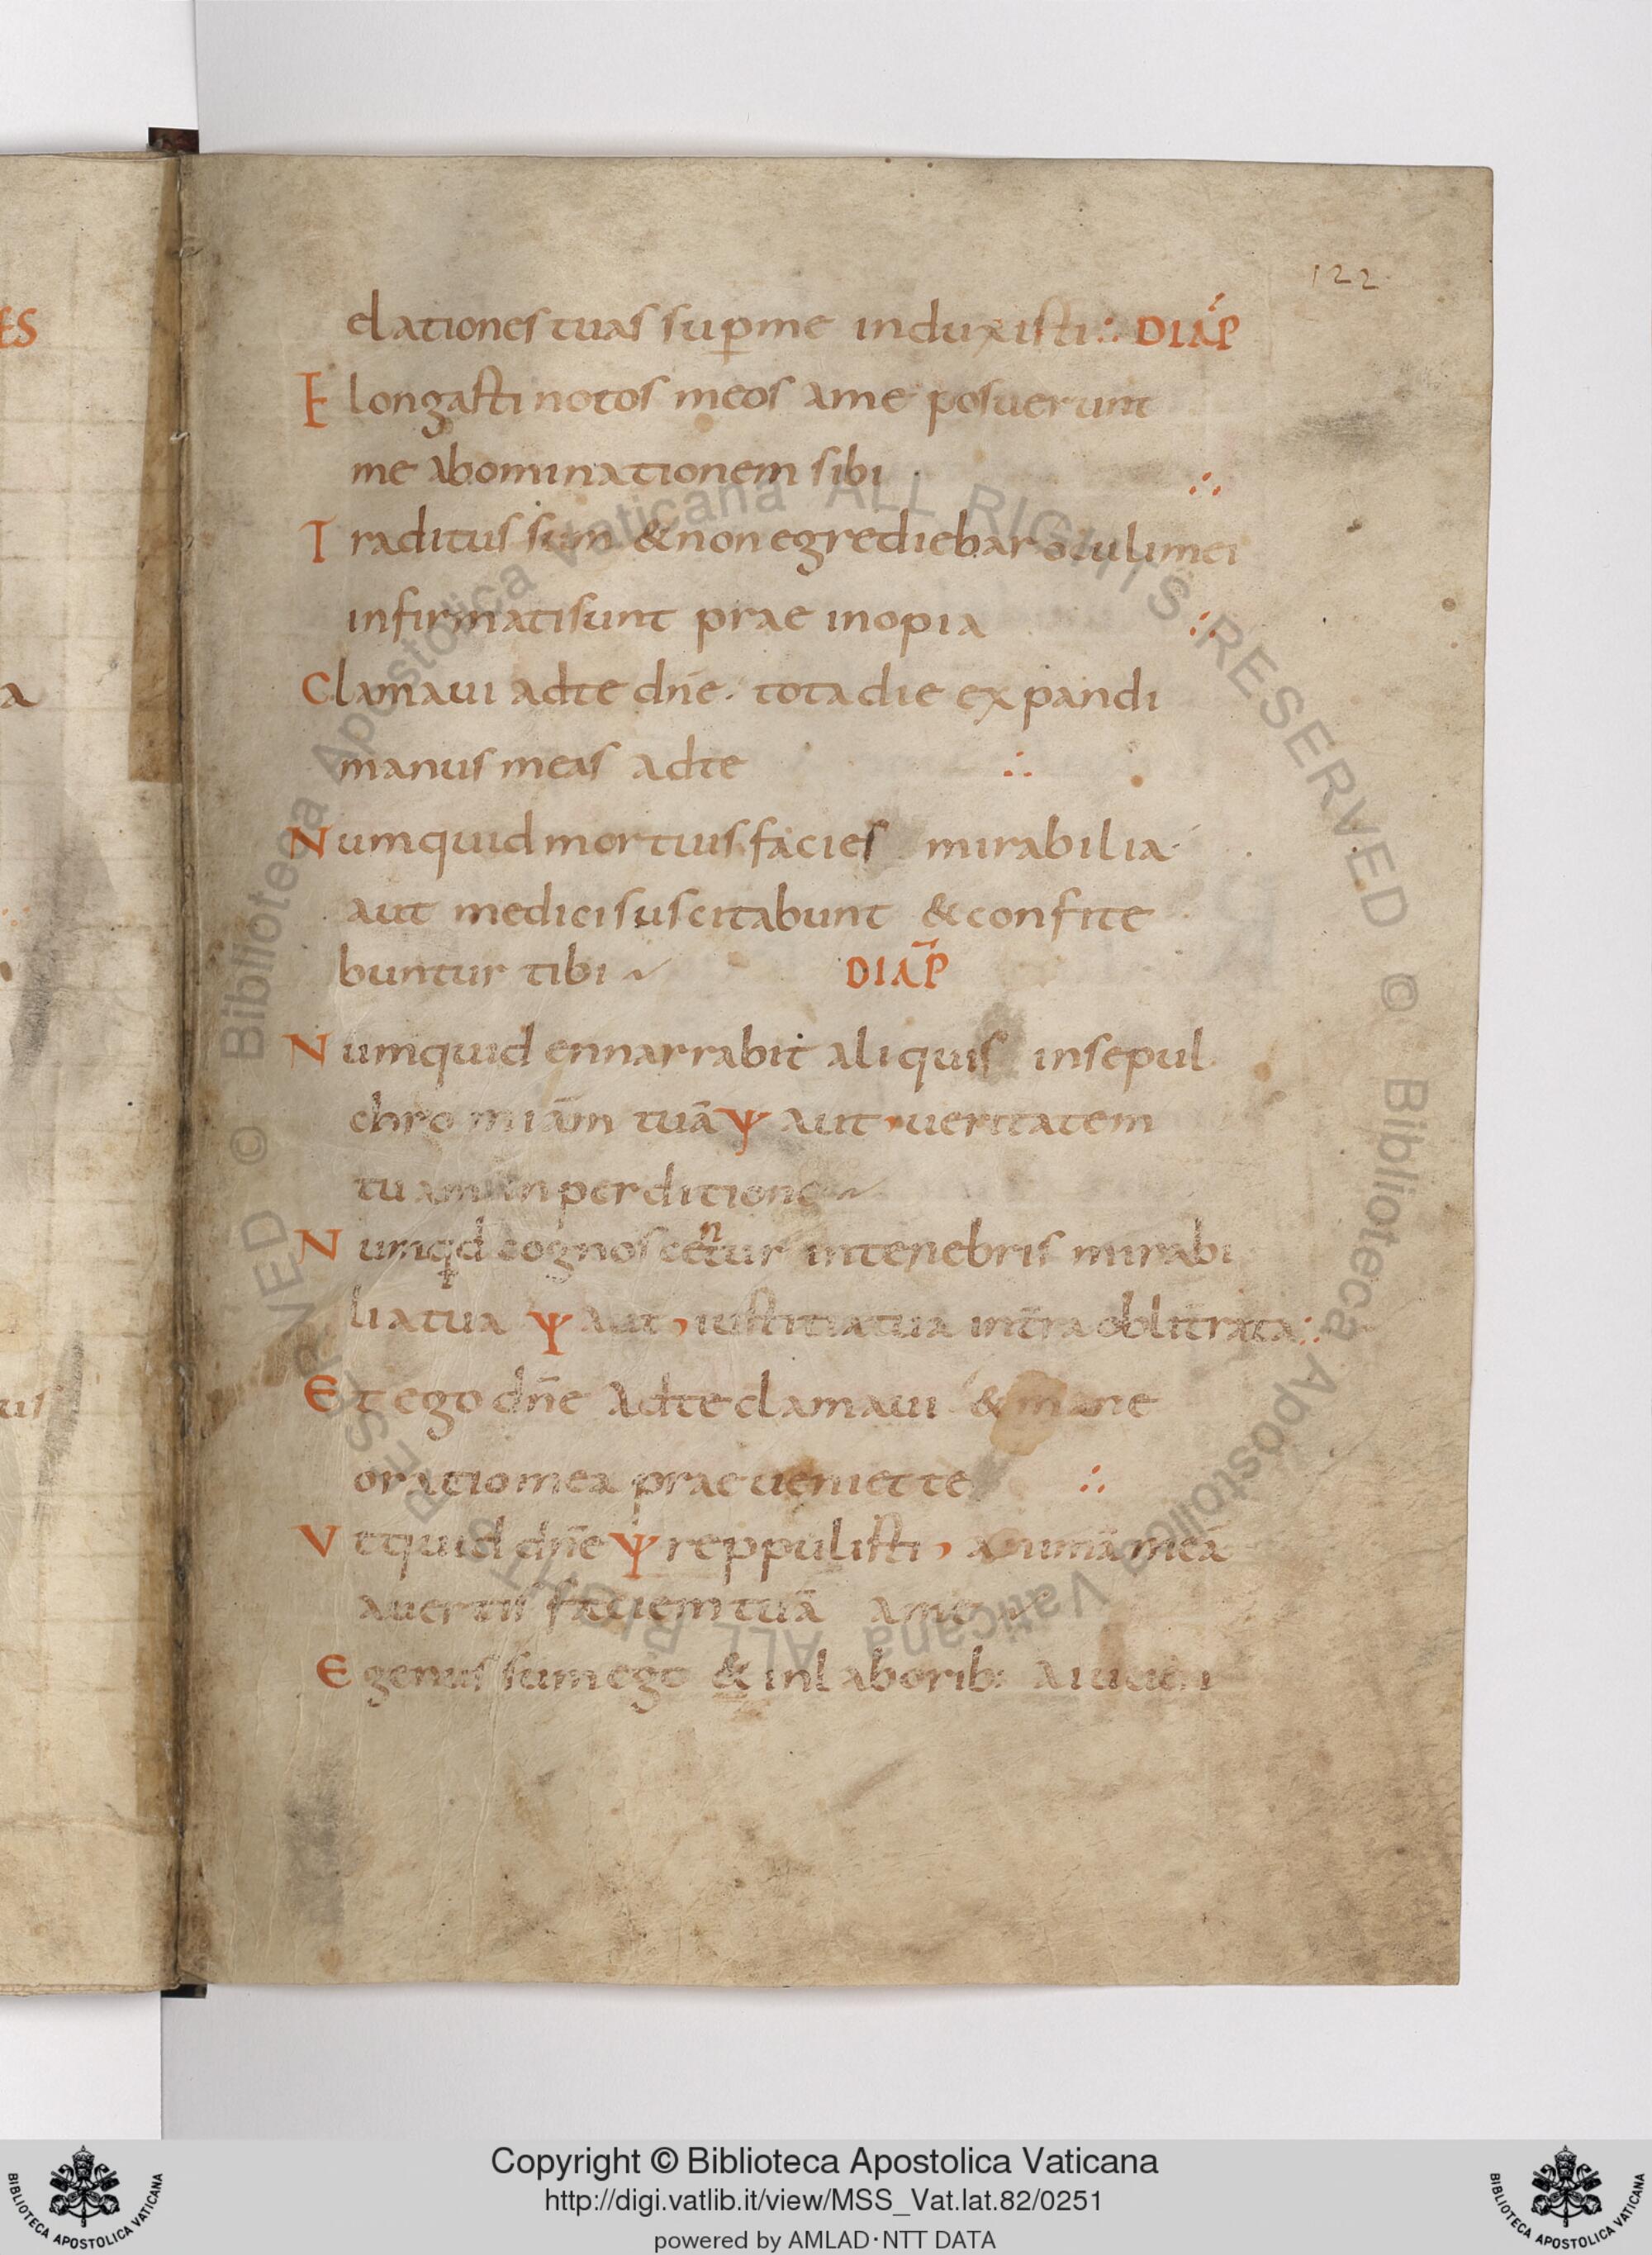 122
elationes tuas sup̱me induxisti ∴ DIA̅P
Elongasti notos meos ame posuerunt
me abominationem sibi ∴
Traditus sum & non egrediebar oculi mei
infirmati sunt prae inopia ∴
Clamaui adte dn̅e. tota die expandi
manus meas adte ∴
Numquid mortuis facies mirabilia
aut medici suscitabunt & confite
buntur tibi DIA̅P
Numquid ennarrabit aliquis insepul
chro miam̅ tuā Ψ aut, ueritatem
tuam in perditione
Numqd cognoscentur intenebris mirabi
lia tua Ψ aut, iustitia tua int̅ra oblitrata ∴
Et ego dn̅e adte clamaui & mane
oratio mea praeueniet te ∴
Vtquid dn̅e Ψ reppulisti, animā meā
auertis faciem tuā ame
Egenus sum ego & inlaborib:
ES
a
us
© Biblioteca Apostolica Vaticana ALL RIGHTS RESERVED © Biblioteca Apostolica Vaticana ALL RIGHTS RESERVED
Copyright © Biblioteca Apostolica Vaticana
http://digi.vatlib.it/view/MSS_Vat.lat.82/0251
powered by AMLAD·NTT DATA
BIBLIOTECA APOSTOLICA VATICANA
BIBLIOTECA APOSTOLICA VATICANA